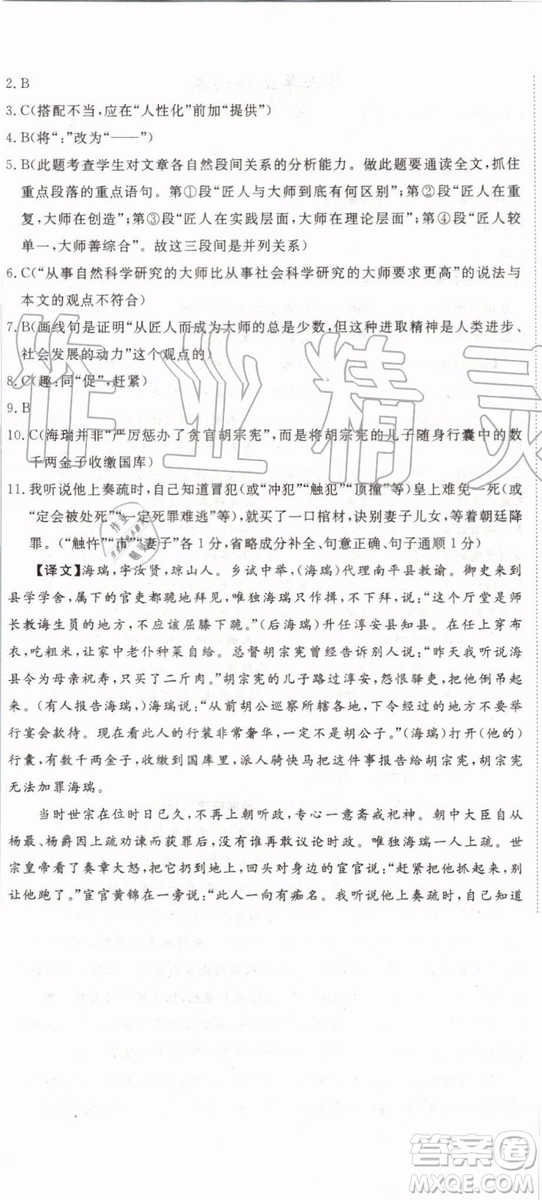 2. B
3. C(搭配不当,应在“人性化”前加“提供”)
4. B(将“:”改为“——”)
5. B(此题考查学生对文章各自然段间关系的分析能力。做此题要通读全文,抓住
重点段落的重点语句。第①段“匠人与大师到底有何区别”;第②段“匠人在重
复,大师在创造”;第③段“匠人在实践层面,大师在理论层面”;第④段“匠人较
单一,大师善综合”。故这三段间是并列关系)
6. C(“从事自然科学研究的大师比从事社会科学研究的大师要求更高”的说法与
本文的观点不符合)
7. B(画线句是证明“从匠人而成为大师的总是少数,但这种进取精神是人类进步、
社会发展的动力”这个观点的)
8. C(趣:同“促”,赶紧)
9. B
10. C(海瑞并非“严厉惩办了贪官胡宗宪”,而是将胡宗宪的儿子随身行囊中的数
千两金子收缴国库)
11. 我听说他上奏疏时,自己知道冒犯(或“冲犯”“触犯”“顶撞”)皇上难免一死(或
“定会被处死”“一定死罪难逃”),就买了一口棺材,诀别妻子儿女,等着朝廷降
罪。(“触忤”“市”“妻子”各1分,省略成分补全、句意正确、句子通顺1分)
【译文】海瑞,字汝贤,琼山人。乡试中举,(海瑞)代理南平县教谕。御史来到
县学学舍,属下的官吏都跪地拜见,唯独海瑞只作揖,说:“这个厅堂是师
长教诲生员的地方,不应屈膝下跪。”(后海瑞)升任淳安县知县。在任上穿布
衣,吃粗米,让家中老仆种菜自给。总督胡宗宪曾经告诉别人说:“昨天我听说海
县令为母亲祝寿,只买了二斤肉。”胡宗宪的儿子路过淳安,怨恨驿吏,把他倒吊
起来。(有人报告海瑞,海瑞)说:“以前胡公巡察所辖各部,命令所路过的地方不要举行
宴会款待。现在看此人的行装非常奢华,一定不是胡公子。”(海瑞)打开(他的)
行囊,有数千两金子,收缴到国库里,派人骑快马把这件事报告胡宗宪,胡宗宪
无法加罪海瑞。
当时世宗在位时日已久,不再上朝听政,专心一意斋戒祀神。朝中大臣自从
杨最、杨爵两人上疏劝谏而获罪后,没有谁再敢议论时政。唯独海瑞一人上疏。世
宗皇帝看了奏章大怒,把它扔到地上,回头对左右的宦官说:“赶紧把他抓起来,别
让他跑了。”宦官黄锦在一旁说:“此人一向有痴名。我听说他上奏疏时,自己知道
作业精灵
答案圈
MXQE.COM